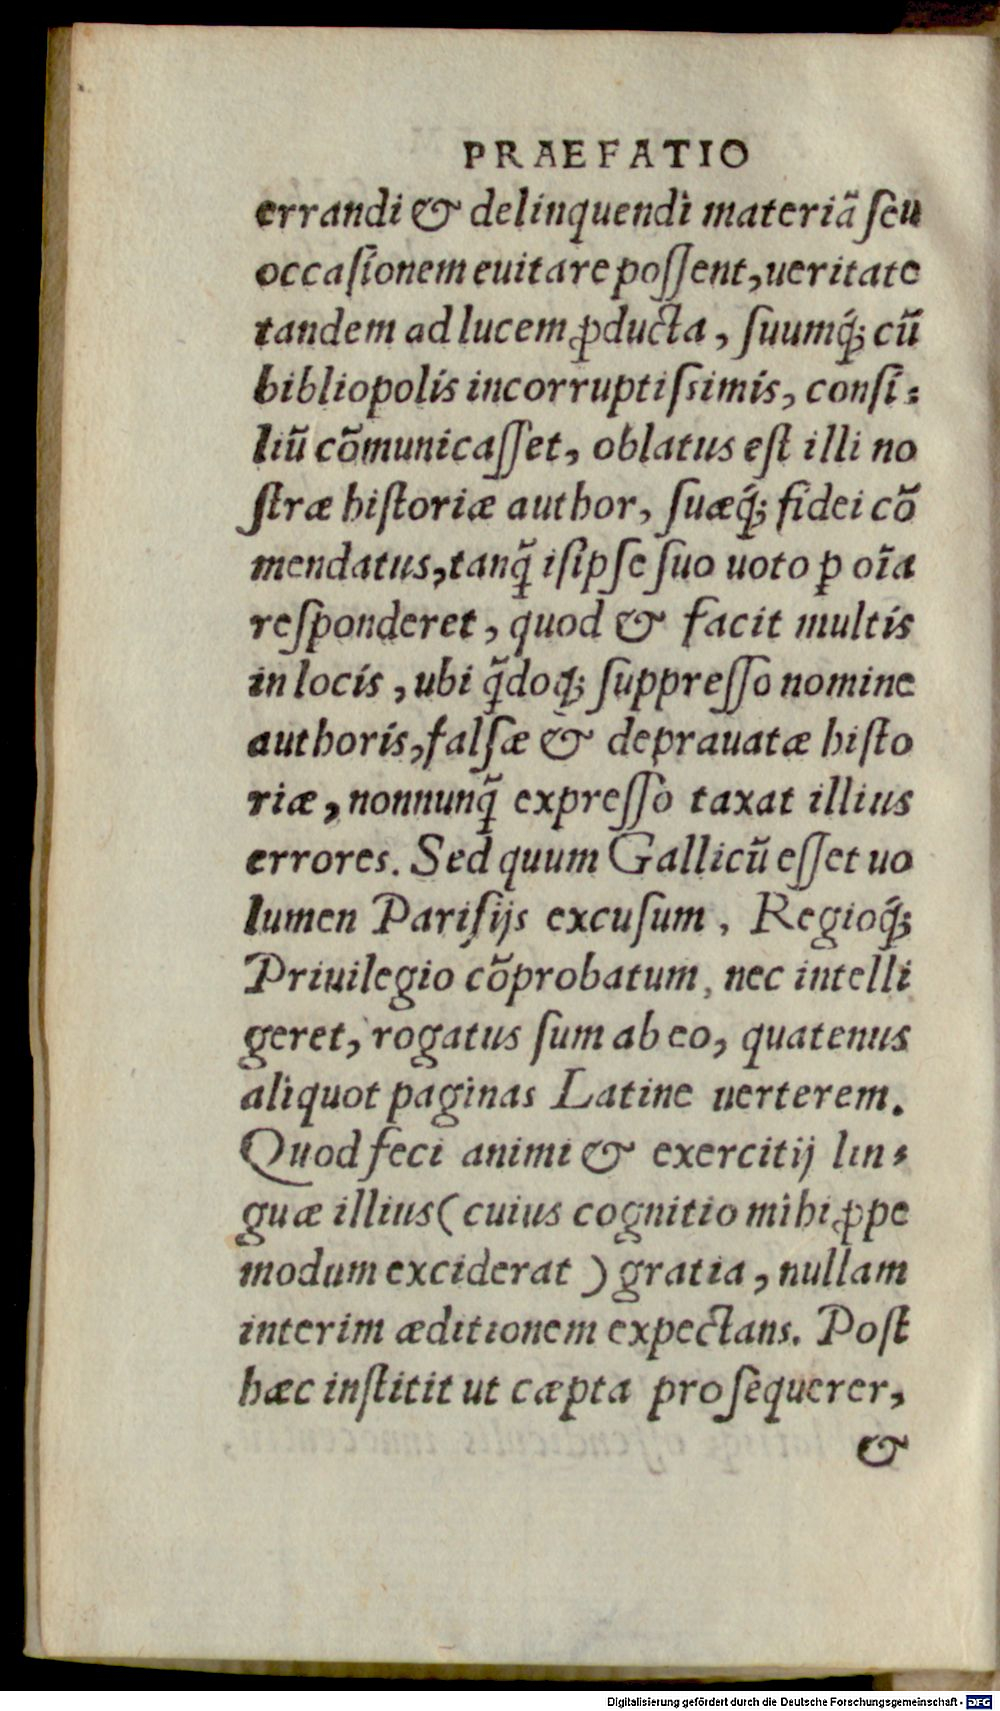 PRAEFATIO
errandi & delinquendi materiā ſeu
occaſionem euitare poſſent, ueritate
tandem ad lucem ꝓducta, ſuumq́; cū
bibliopolis incorruptiſsimis, conſi⸗
liū cōmunicaſſet, oblatus eſt illi no
ſtræ hiſtoriæ author, ſuæq́; fidei cō
mendatus, tanq̃ iſipſe ſuo uoto ꝑ oīa
reſponderet, quod & facit multis
in locis, ubi q̃doq; ſuppreſſo nomine
authoris, falſæ & deprauatæ hiſto
riæ, nonnunq̃ expreſſo taxat illius
errores. Sed quum Gallicū eſſet uo
lumen Pariſijs excuſum, Regioq́;
Priuilegio cōprobatum, nec intelli
geret, rogatus ſum ab eo, quatenus
aliquot paginas Latine uerterem.
Quod feci animi & exercitij lin⸗
guæ illius (cuius cognitio mihi ꝓpe
modum exciderat) gratia, nullam
interim æditionem expectans. Poſt
hæc inſtitit ut cæpta proſequerer,
&
Digitalisierung gefördert durch die Deutsche Forschungsgemeinschaft - DFG